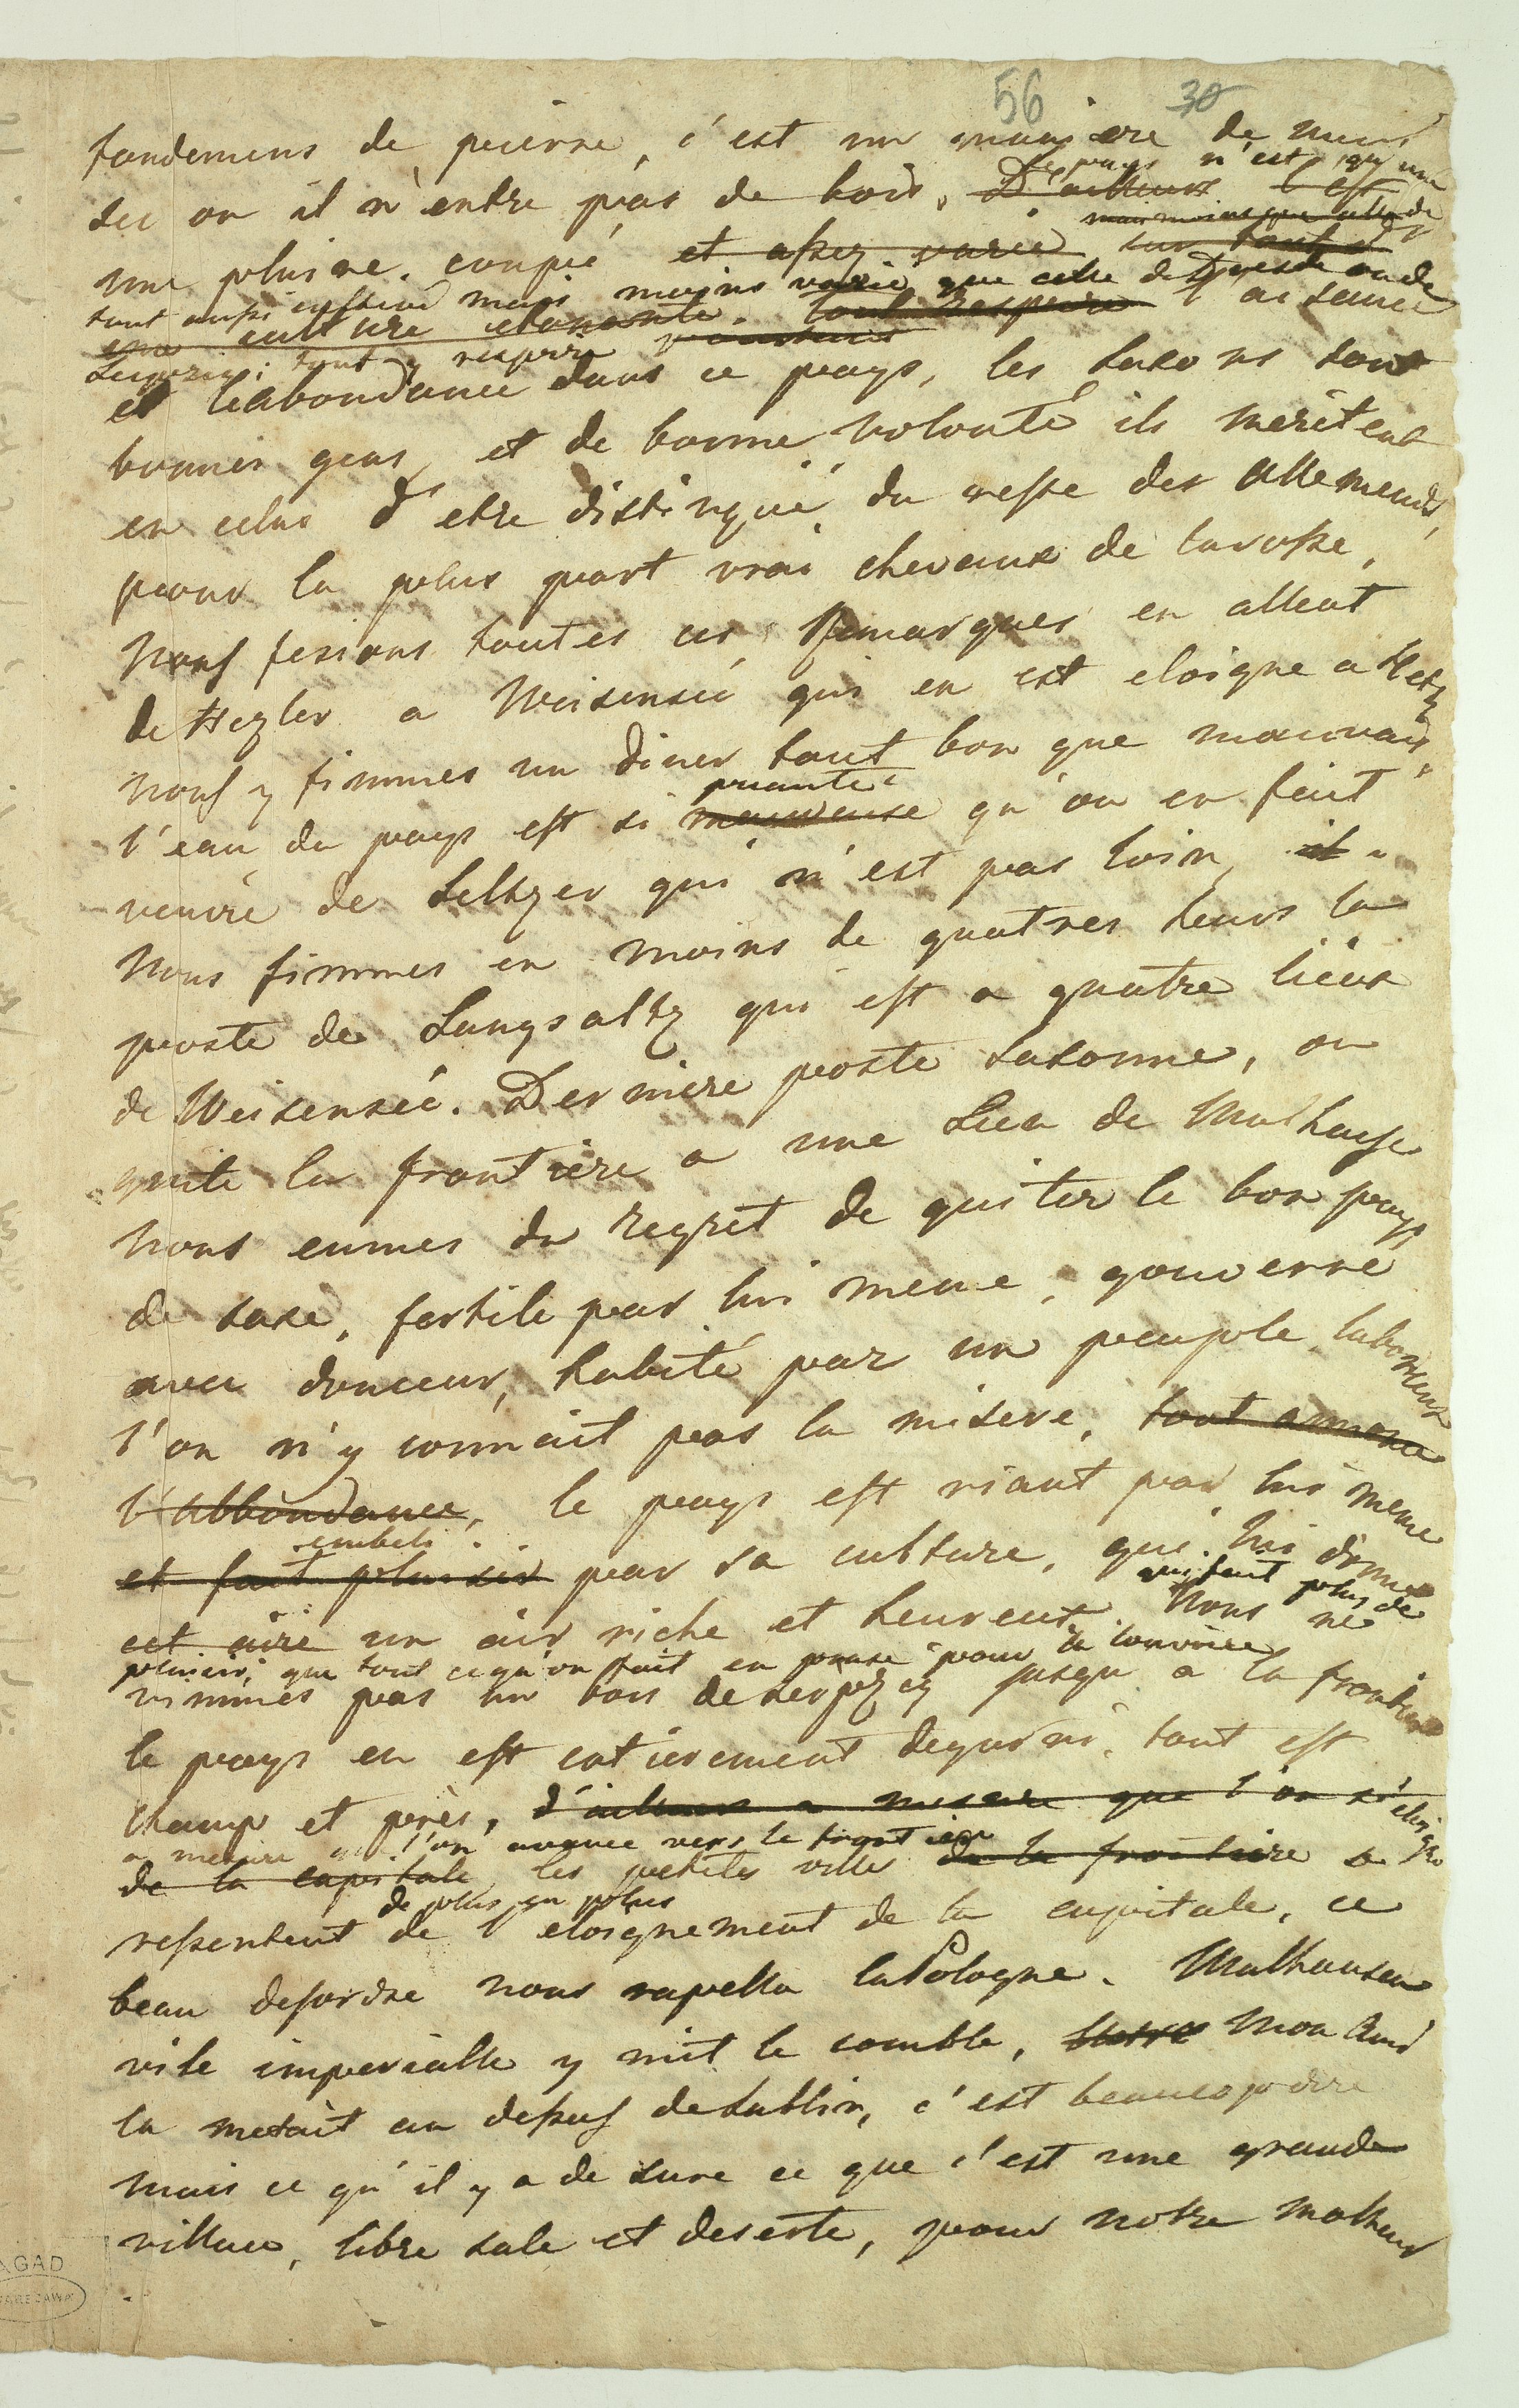 56 30
fondemens de pierre, c'est un maniere de murs
sec ou il n'entre pas de bois. D'ailleurs l'est
le pays n'est qu'une
mais moins que celle de
une plaine coupé et assez varié sur tout
tout aussi cultivé mais moins varié que celle de Dresde ou de
une culture etonante. tout respire l'aisance
Leipzig; tout y respire
et l'abondance dans ce pays, les saxons sont
bonnes gens et de bonne volonté ils meritent
en celas d'etre distingué du reste des Allemends,
pour la plus part vrai chevaux de carosse,
Nous fesions toutes ces remarques en allent
de a Weisensée qui en est eloigne a
nous y fimmes un diner tant bon que mauvais,
puante
l'eau du pays est si mauvaise qu'on en fait
venire de Seltzer qui n'est pas loin, il a
Nous fimmes en moins de quatres heurs la
poste de Langsaltz qui est a quatre lieux
de Weisensée. Derniere poste saxonne, on
quite la frontiere a une Lieu de Mulhause
Nous eumes du regret de quiter le bon pays
de saxe, fertile par lui meme, gouverné
avec douceur, habité par un peuple laborieux
l'on n'y connait pas la misere, tout annonce
l'abbondance, le pays est riant par lui meme
embeli
et fait plaisir par sa culture, qui lui donne
qui fait plus de
cet aire un air riche et heureux. Nous ne
plaisir, que tout ce qu'on fait en pense pour la
vimmes pas un bois de Leipzig jusqu'a la frontiere
le pays en est entierement degarni, tout est
champ et près, d'ailleurs a mesure que l'on s'eloigne
a mesure qu l'on avance vers le frontier
de la capitale les petites villes de la frontiere se
de plus en plus
ressentent de l'eloignement de la capitale, ce
beau desordre nous rapella la Pologne. Mulhausen
vile imperialle y mit le comble, Mon Ami
la metait au dessus de Lublin, c'est beaucop dire
mais ce qu'il y a de sure ce que c'est une grande
villace, libre sale et deserte, pour notre malheur
AGAD
WARSZAWA